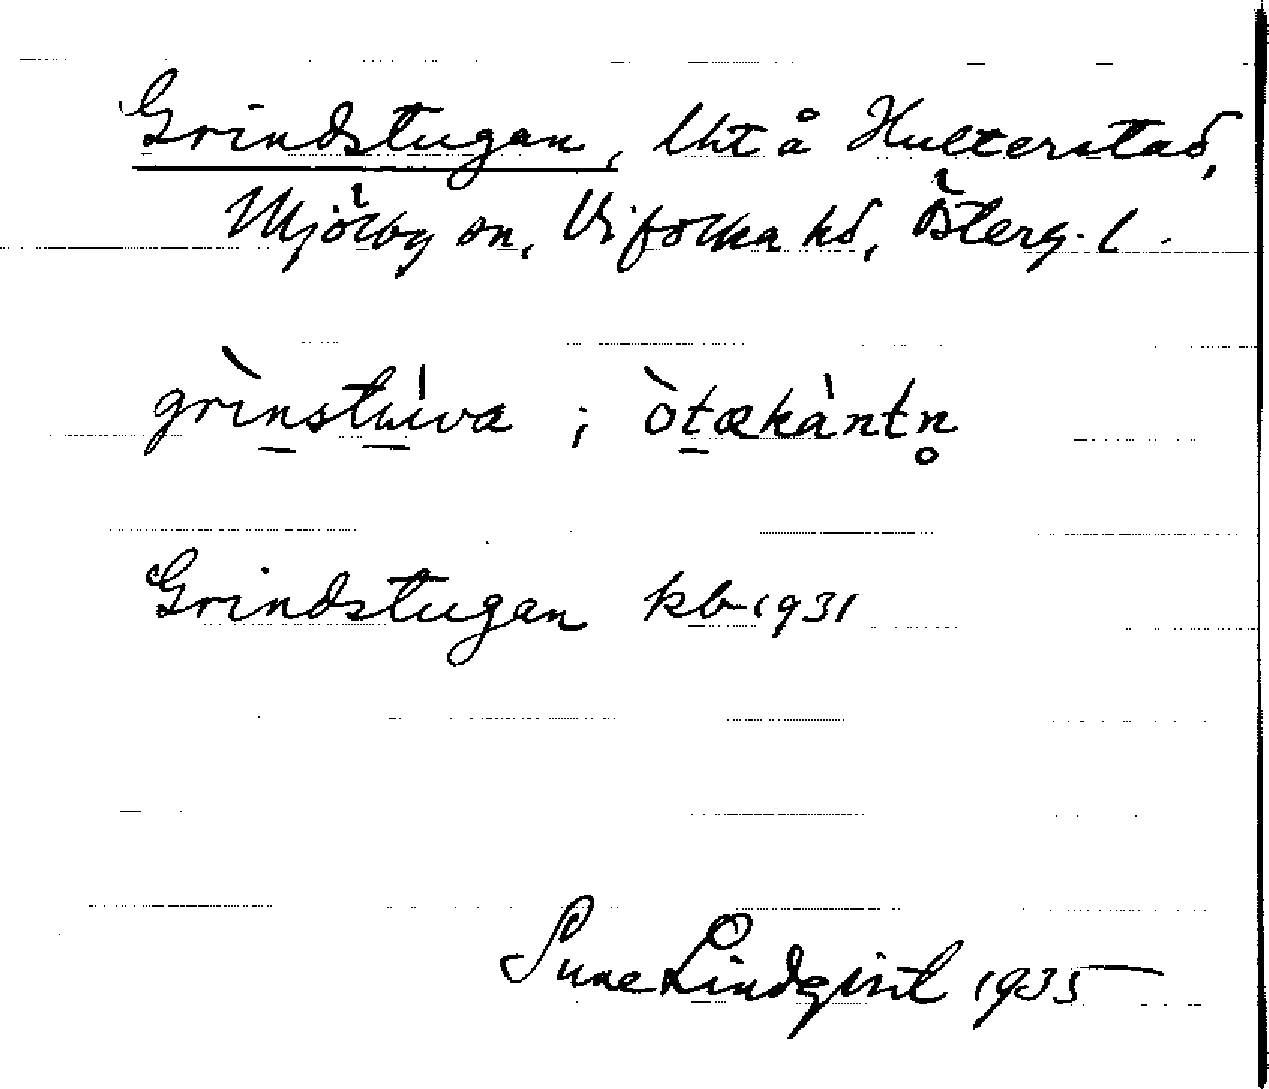 Grindstugan, lht å Hulterstad,
Mjölby sn, Vifolka hd, Österg. l.
grìnstùvа ; òtækàntn̥
Grindstugan kb 1931
Sune Lindqvist 1935